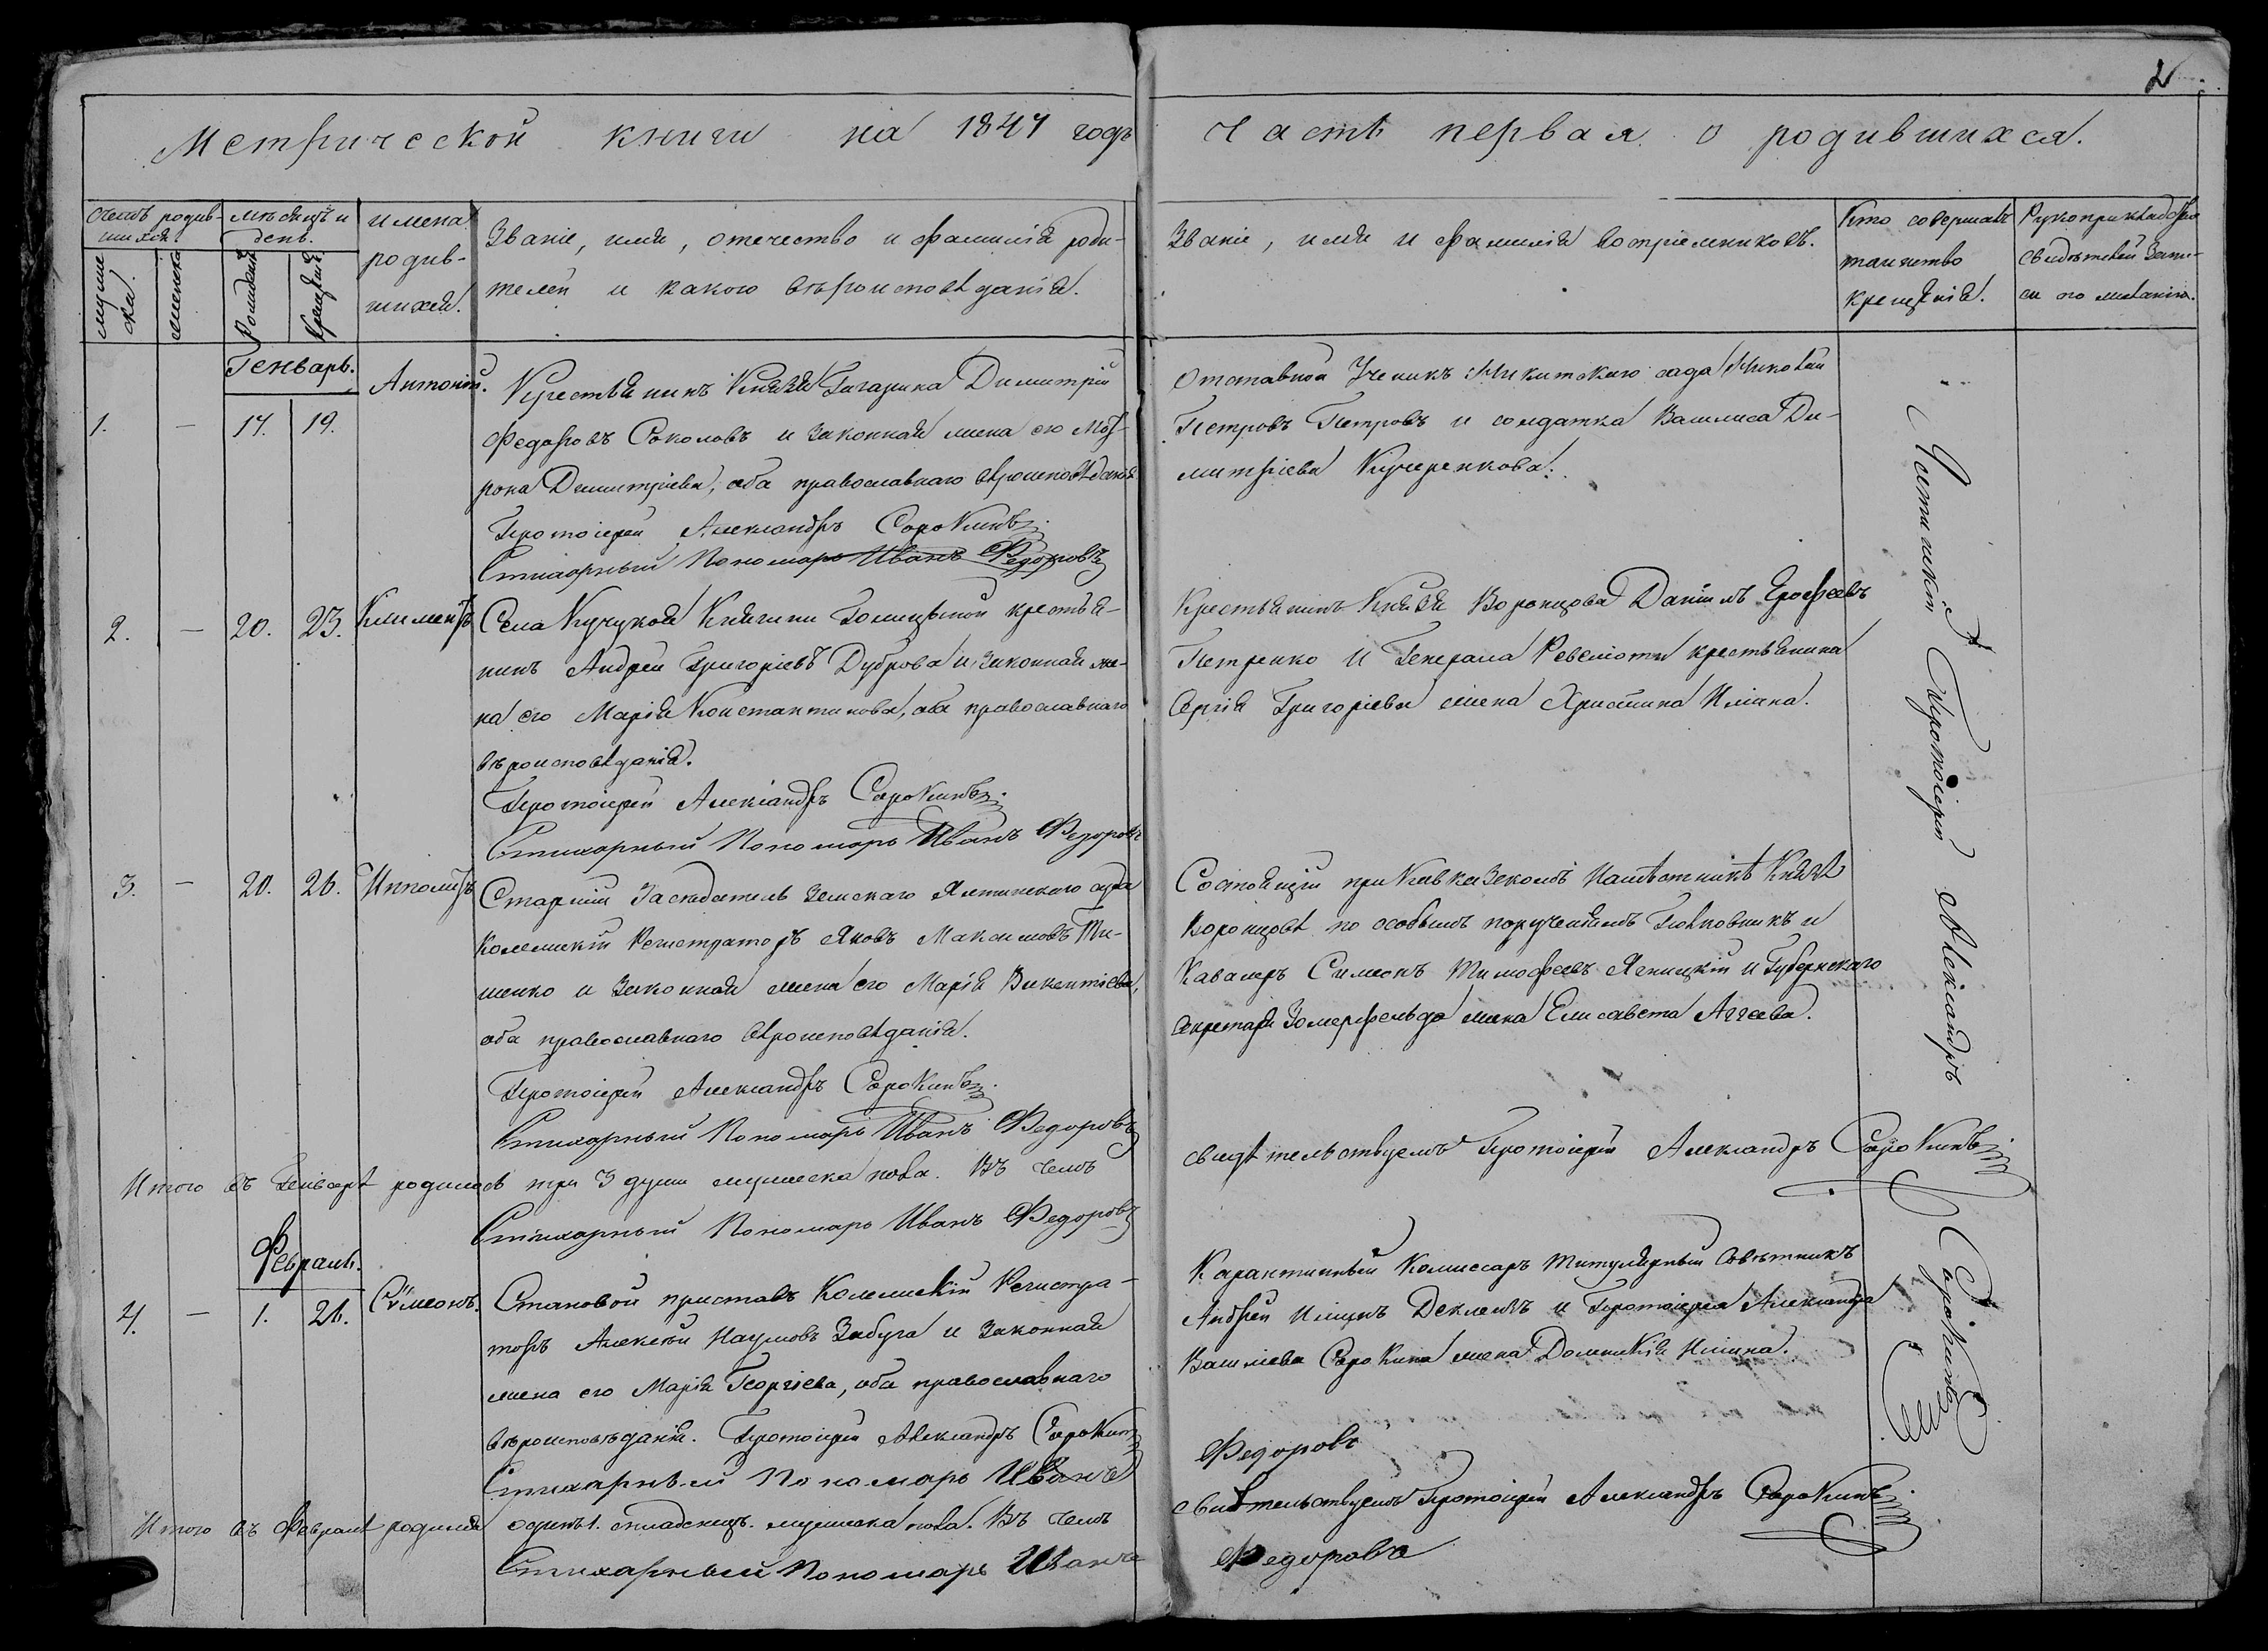 2
Метрической книги на 1847 годъ часть первая о родившихся.
Счетъ родив-
шихся.
мужеска.
женска
мѣсяцъ и
день.
Рожденія
Крещенія
имена
родив-
шихся.
Званіе, имя, отечество и фамилія роди-
телей и какого вѣроисповѣданія.
Званіе, имя и фамилія воспріемниковъ.
Кто совершалъ
таинство
крещенія.
Рукоприкладство
свидѣтелей запи-
си по желанію.
Генварь.
1. — 17. 19. Антоній.
Крестьянинъ Князя Гагарина Димитрій
Федоровъ Соколовъ и законная жена его Мат-
рона Димитріева, оба православнаго вѣроисповѣданія
Протоіерей Александръ Сорокинъ.
Стихарный Пономарь Иванъ Федоровъ
Отставной Ученикъ Никитскаго сада Николай
Петровъ Петровъ и солдатка Василиса Ди-
митріева Кучеренкова.
2. — 20. 23. Климентъ
Села Кучукоя Княгини Голицыной крестья-
нинъ Андрей Григорьевъ Дуброва и законная же-
на его Марія Константинова, оба православнаго
вѣроисповѣданія.
Протоіерей Александръ Сорокинъ.
Стихарный Пономарь Иванъ Федоровъ
Крестьянинъ Князя Воронцова Даніилъ Ерофеевъ
Петренко и Генерала Ревеліоти крестьянина
Сергія Григоріева жена Христина Ильина.
3. — 20. 26. Ипполитъ
Старшій Засѣдатель Земскаго Ялтинскаго суда
Колежскій Регистраторъ Яковъ Максимовъ Ти-
шенко и законная жена его Марія Викентіева,
оба православнаго вѣроисповѣданія.
Протоіерей Александръ Сорокинъ.
Стихарный Пономарь Иванъ Федоровъ
Состоящій при Кавказскомъ Намѣстникѣ Князѣ
Воронцовѣ по особымъ порученіямъ Полковникъ и
Кавалеръ Симеонъ Тимофеевъ Ягницкій и Губернскаго
секретаря Зомерфельда жена Елисавета Аггеева.
Итого въ Генварѣ родилось три 3 души мужеска пола. Въ чемъ
свидѣтельствуемъ Протоіерей Александръ Сорокинъ
Стихарный Пономарь Иванъ Федоровъ
Февраль.
4. — 1. 21. Сѵмеонъ.
Становой приставъ Колежскій Регистра-
торъ Алексѣй Наумовъ Забуга и законная
жена его Марія Георгіева, оба православнаго
вѣроисповѣданія. Протоіерей Александръ Сорокинъ
Стихарный Пономарь Иванъ
Федоровъ
Карантинный Комиссаръ Титулярный Совѣтникъ
Андрей Ильинъ и Протоіерея Александра
Васильева Сорокина жена Домникія Ильина.
Итого въ Февралѣ родился одинъ 1. младенецъ. мужеска пола. Въ чемъ
свидѣтельствуемъ Протоіерей Александръ Сорокинъ
Стихарный Пономарь Иванъ
Федоровъ
Протоіерей Александръ
Сорокинъ